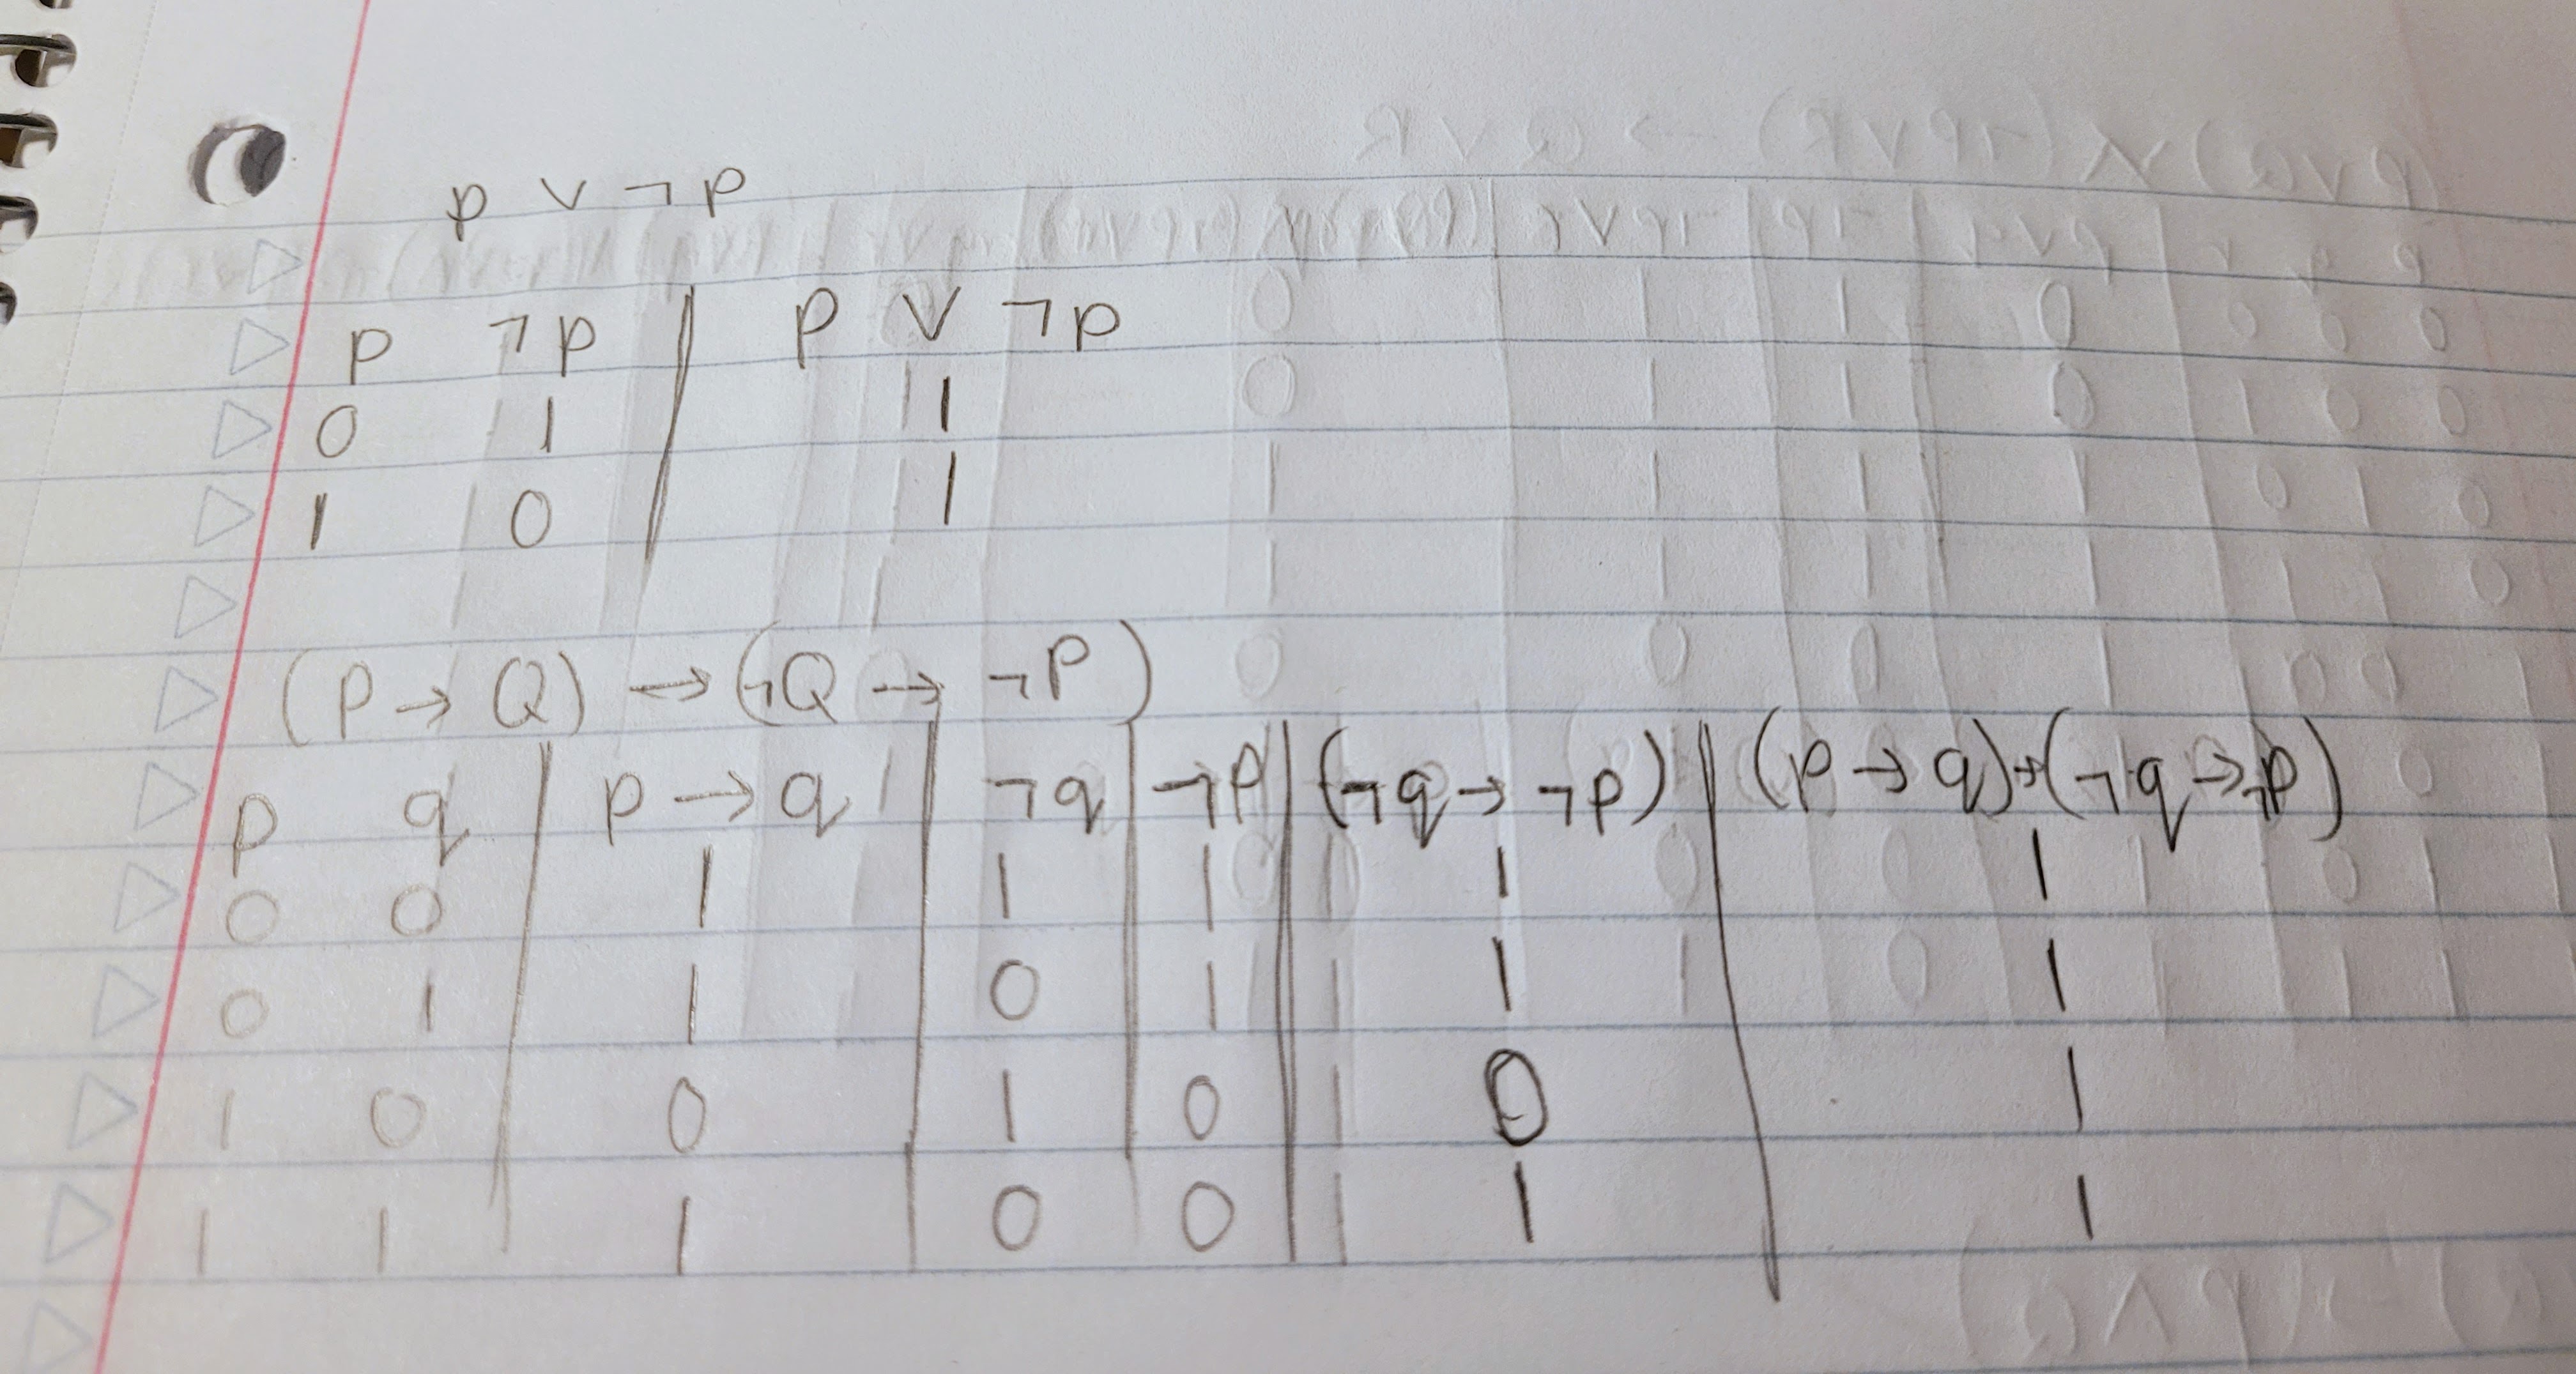 p ∨ ¬p
p ¬p p ∨ ¬p
0 1 1
1 0 1
(P → Q) → (¬Q → ¬P)
p q p → q ¬q ¬p (¬q → ¬p) (p → q)→(¬q →¬p)
0 0 1 1 1 1 1
0 1 1 0 1 1 1
1 0 0 1 0 0 1
1 1 1 0 0 1 1